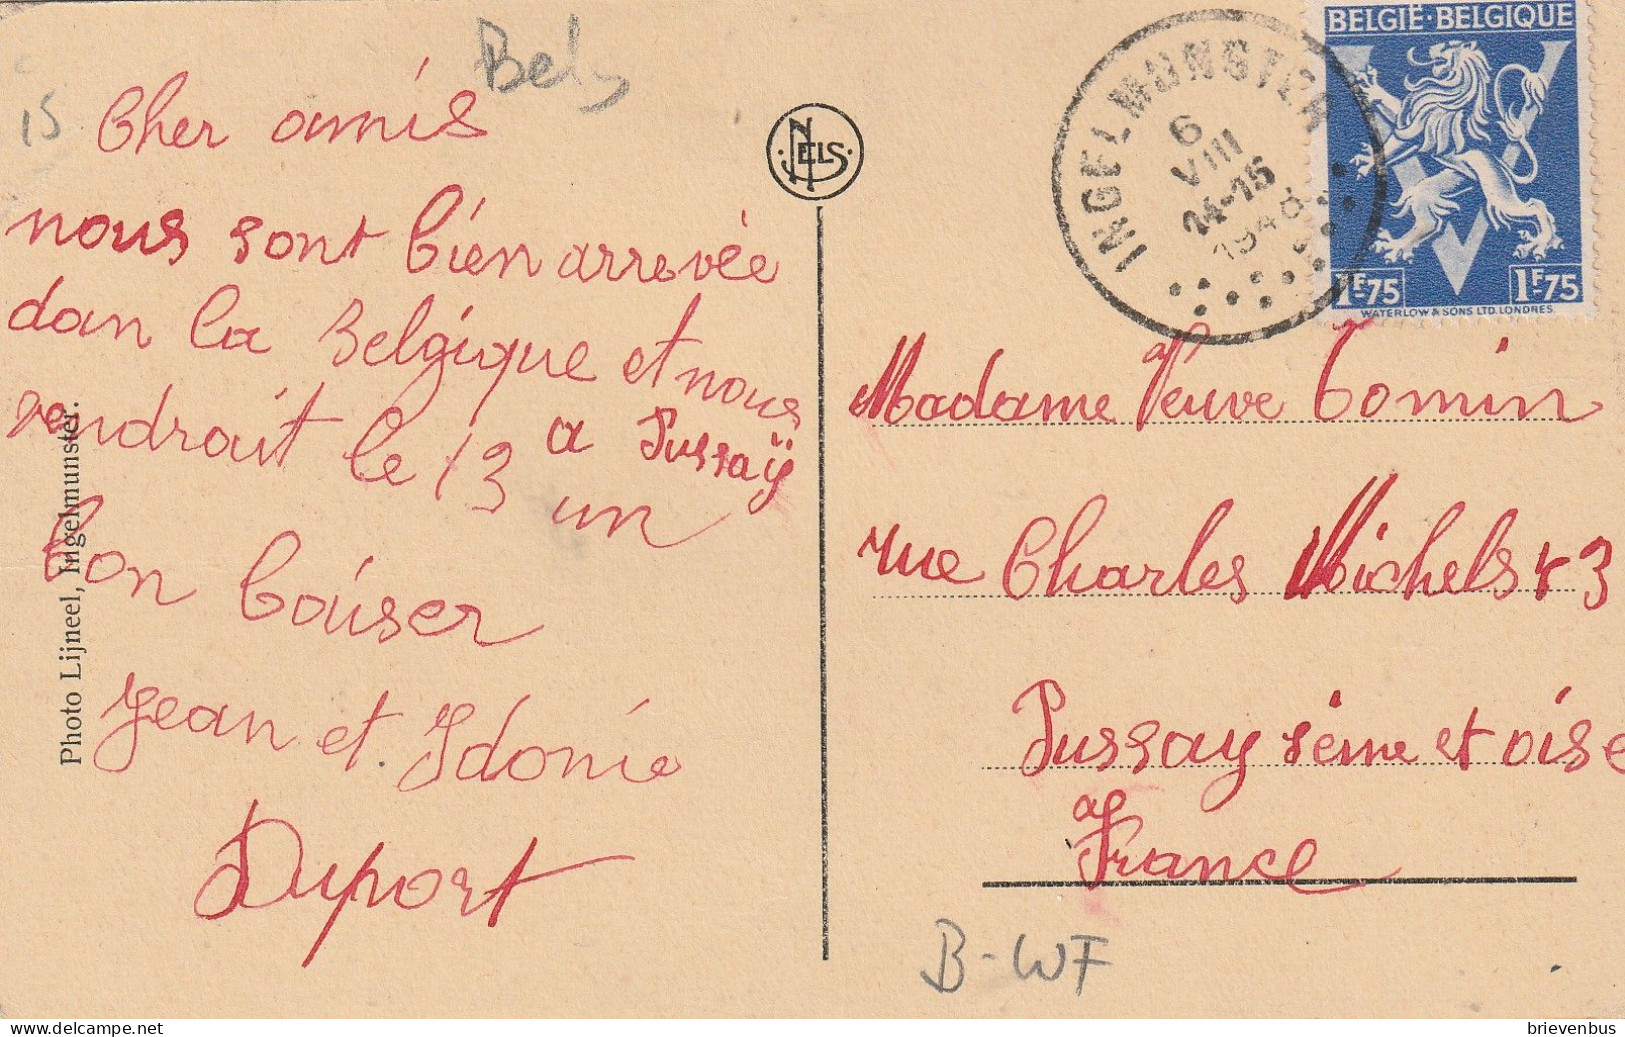 Bels
15
Cher amis
nous sont bien arrevée
dan la Belgique et nous
vendrait le 13 a Pussaÿ
un
bon baiser
Jean et Idonie
Duport
Photo Lijneel, Ingelmunster.
NELS
INGELMUNSTER
6
VIII
14-15
194
BELGIË·BELGIQUE
1F75 1F75
WATERLOW & SONS LTD. LONDRES
a
Madame Veuve Comin
rue Charles Michels 43
Pussay seine et oise
a
France
B-WF
© delcampe.net
brievenbus